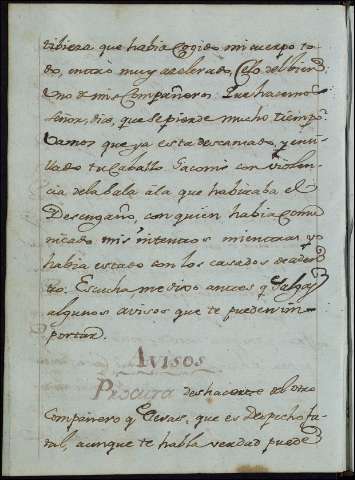 tibieza que habia cogido mi cuerpo to
do, entró muy acelerado, Celo del bien
Uno de mis Compañeros. Que hacemos
Señor, dixo, que se pierde mucho tiempo.
Vamos que ya esta descansado, y ensi
llado tu Caballo. Sacome con violen
cia de la sala à la que habitaba el
Desengaño, con quien habia comu
nicado mis intentos mientras yo
habia estado con los casados de aden
tro. Escucha, me dixo antes q. salgas
algunos avisos que te pueden im
portar.
AVISOS
Procura deshacerte del otro
Compañero q. llevas, que es Despecho fa
tal, aunque te habla verdad puede